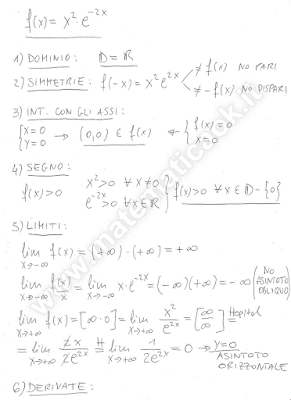 f(x) = x² · e^(-2x)
1) DOMINIO: D = ℝ
2) SIMMETRIE: f(-x) = x² e^(2x) ≠ f(x) NO PARI
≠ -f(x) NO DISPARI
3) INT. CON GLI ASSI:
{x=0 y=0 → (0,0) ∈ f(x) ← {f(x)=0 x=0
4) SEGNO:
f(x)>0 x²>0 ∀ x≠0 e^(-2x)>0 ∀x∈ℝ } f(x)>0 ∀x ∈ D-{0}
5) LIMITI:
lim x→-∞ f(x) = (+∞)·(+∞) = +∞
lim x→-∞ f(x)/x = lim x→-∞ x·e^(-2x) = (-∞)(+∞) = -∞ (NO ASINTOTO OBLIQUO)
lim x→+∞ f(x) = [∞·0] = lim x→+∞ x²/e^(2x) = [∞/∞] Hopital =
= lim x→+∞ 2x/2e^(2x) H= lim x→+∞ 1/2e^(2x) = 0 → y=0
ASINTOTO
ORIZZONTALE
6) DERIVATE:
www.matematicaok.it